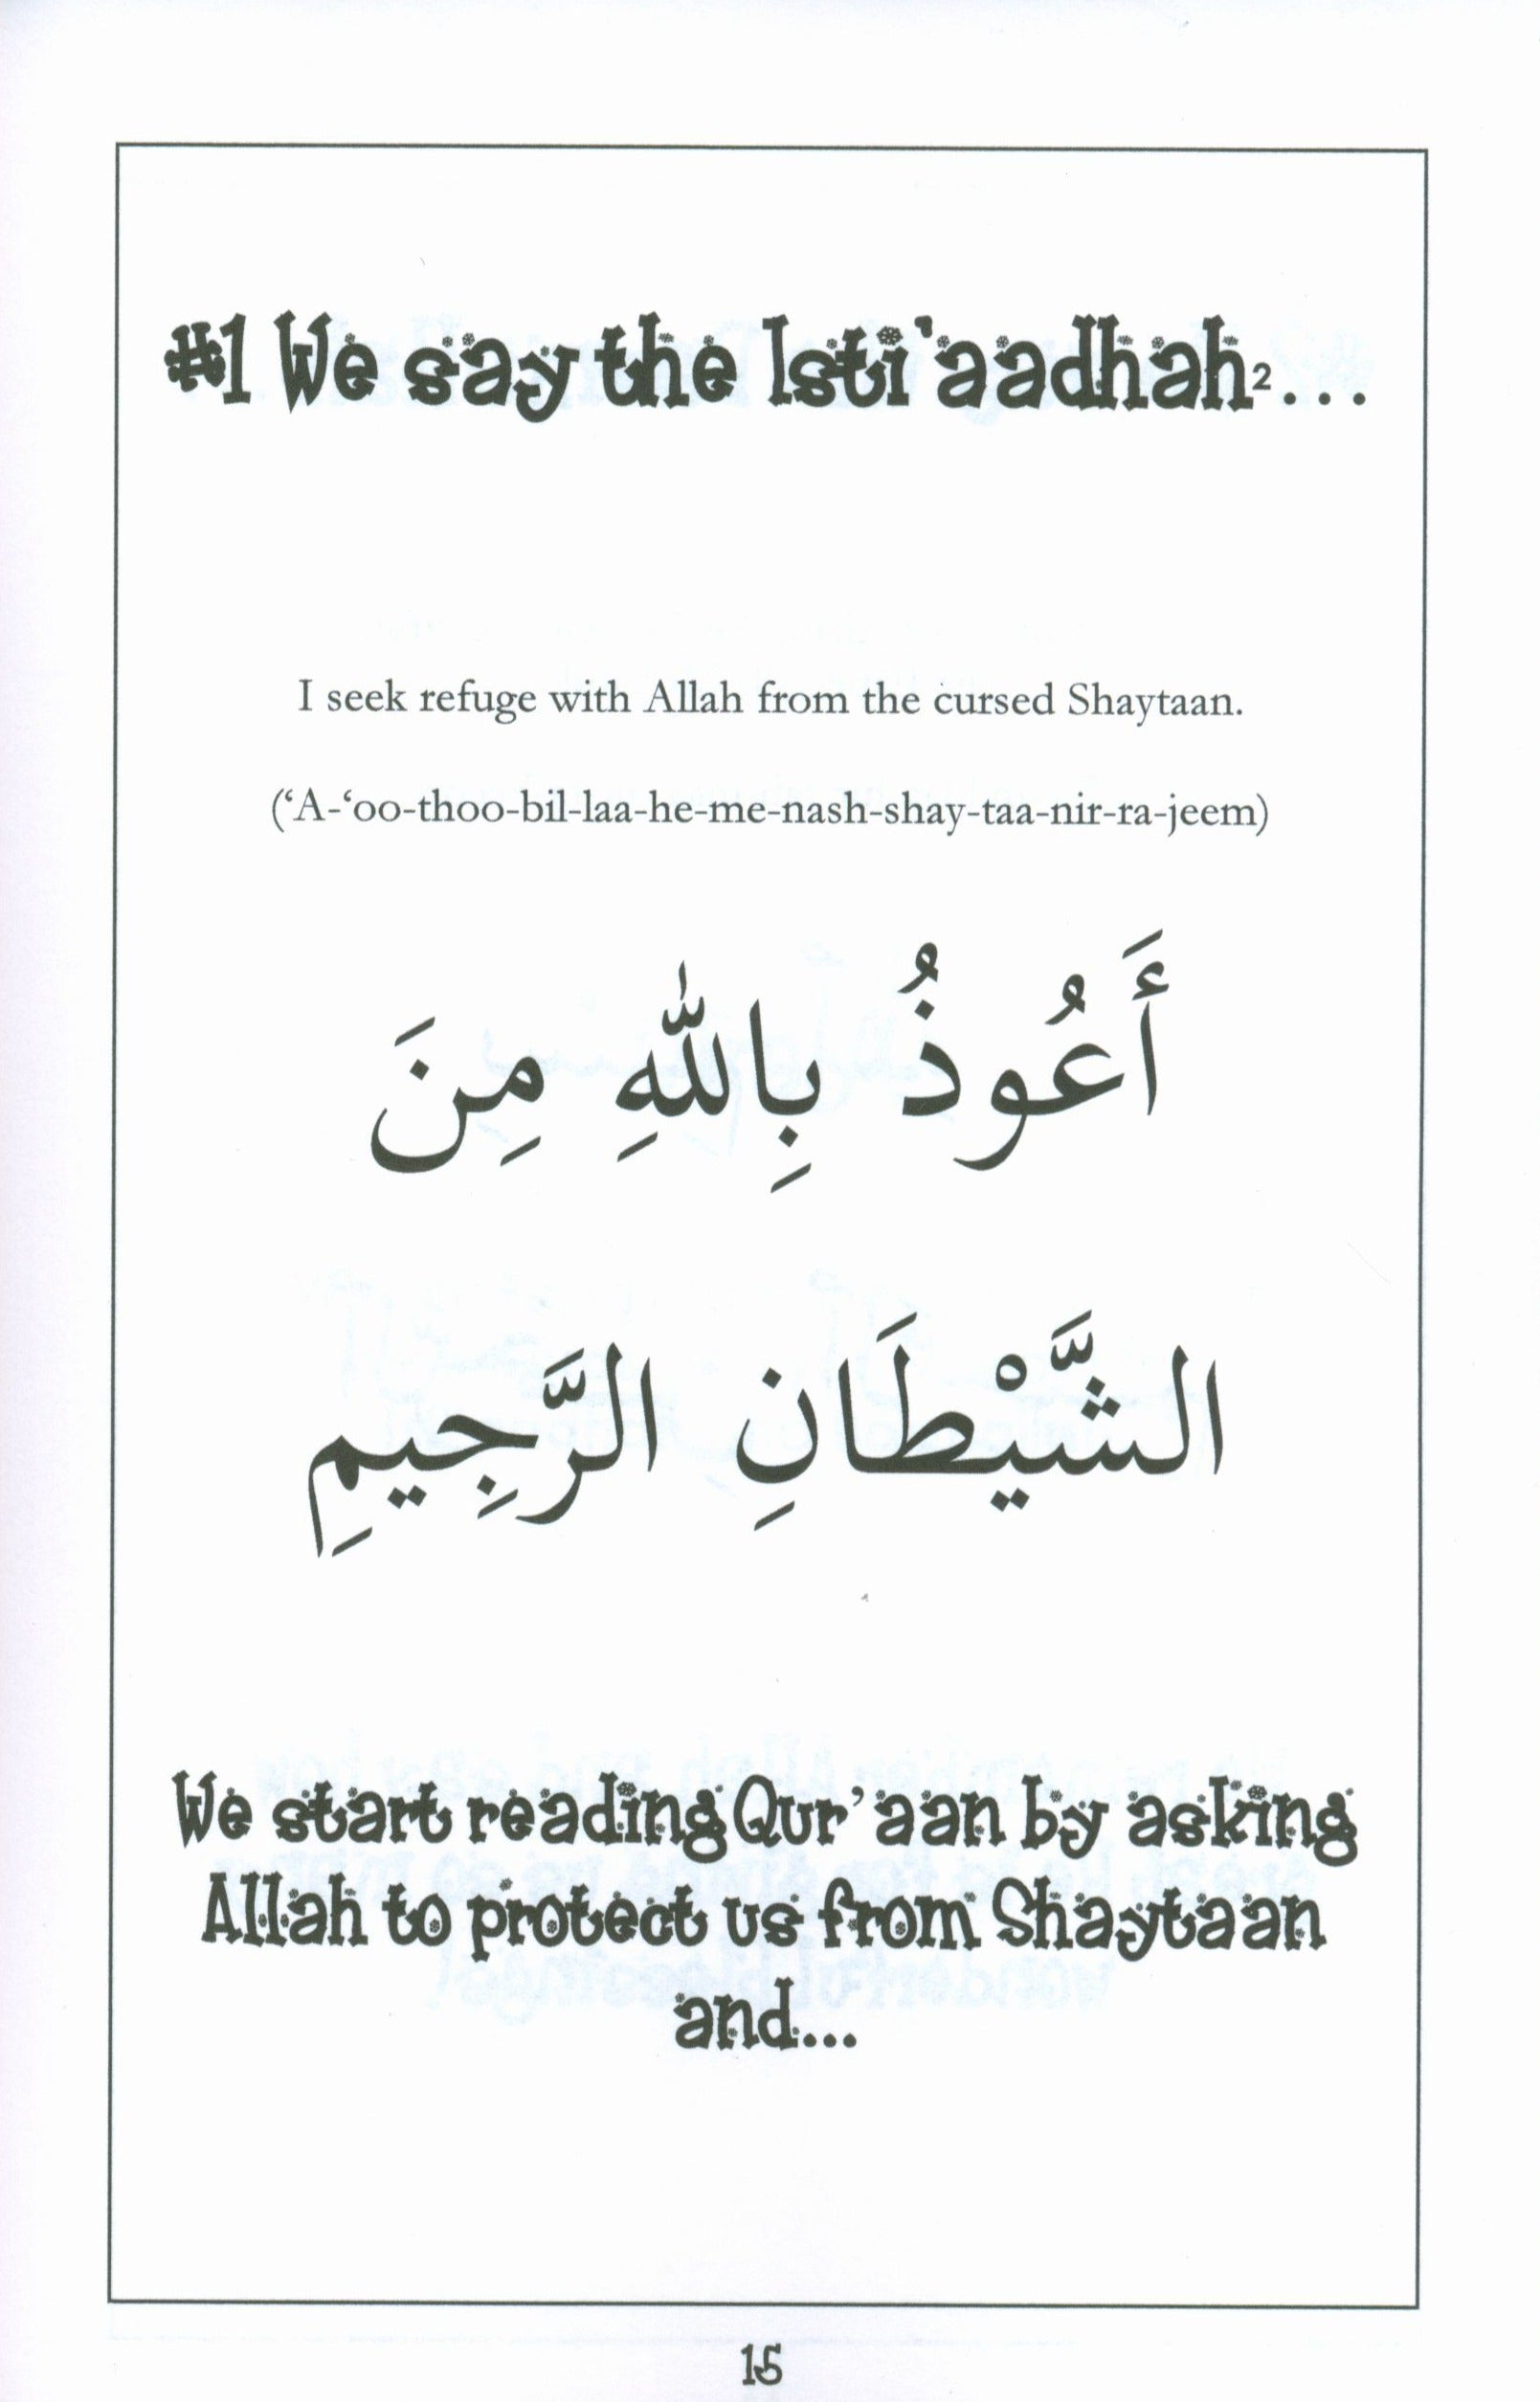 #1 We say the Isti'aadhah²...
I seek refuge with Allah from the cursed Shaytaan.
(‘A-‘oo-thoo-bil-laa-he-me-nash-shay-taa-nir-ra-jeem)
أَعُوذُ بِاللّٰهِ مِنَ
الشَّيْطَانِ الرَّجِيمِ
We start reading Qur’aan by asking
Allah to protect us from Shaytaan
and...
15